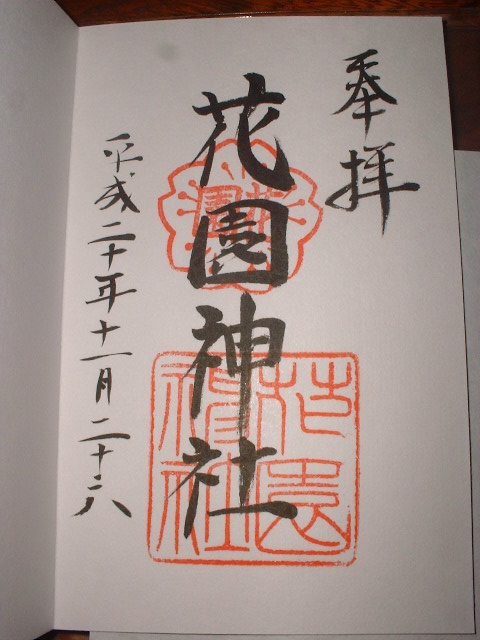 奉拝
花園神社
平成二十年十一月二十八
花園
神社